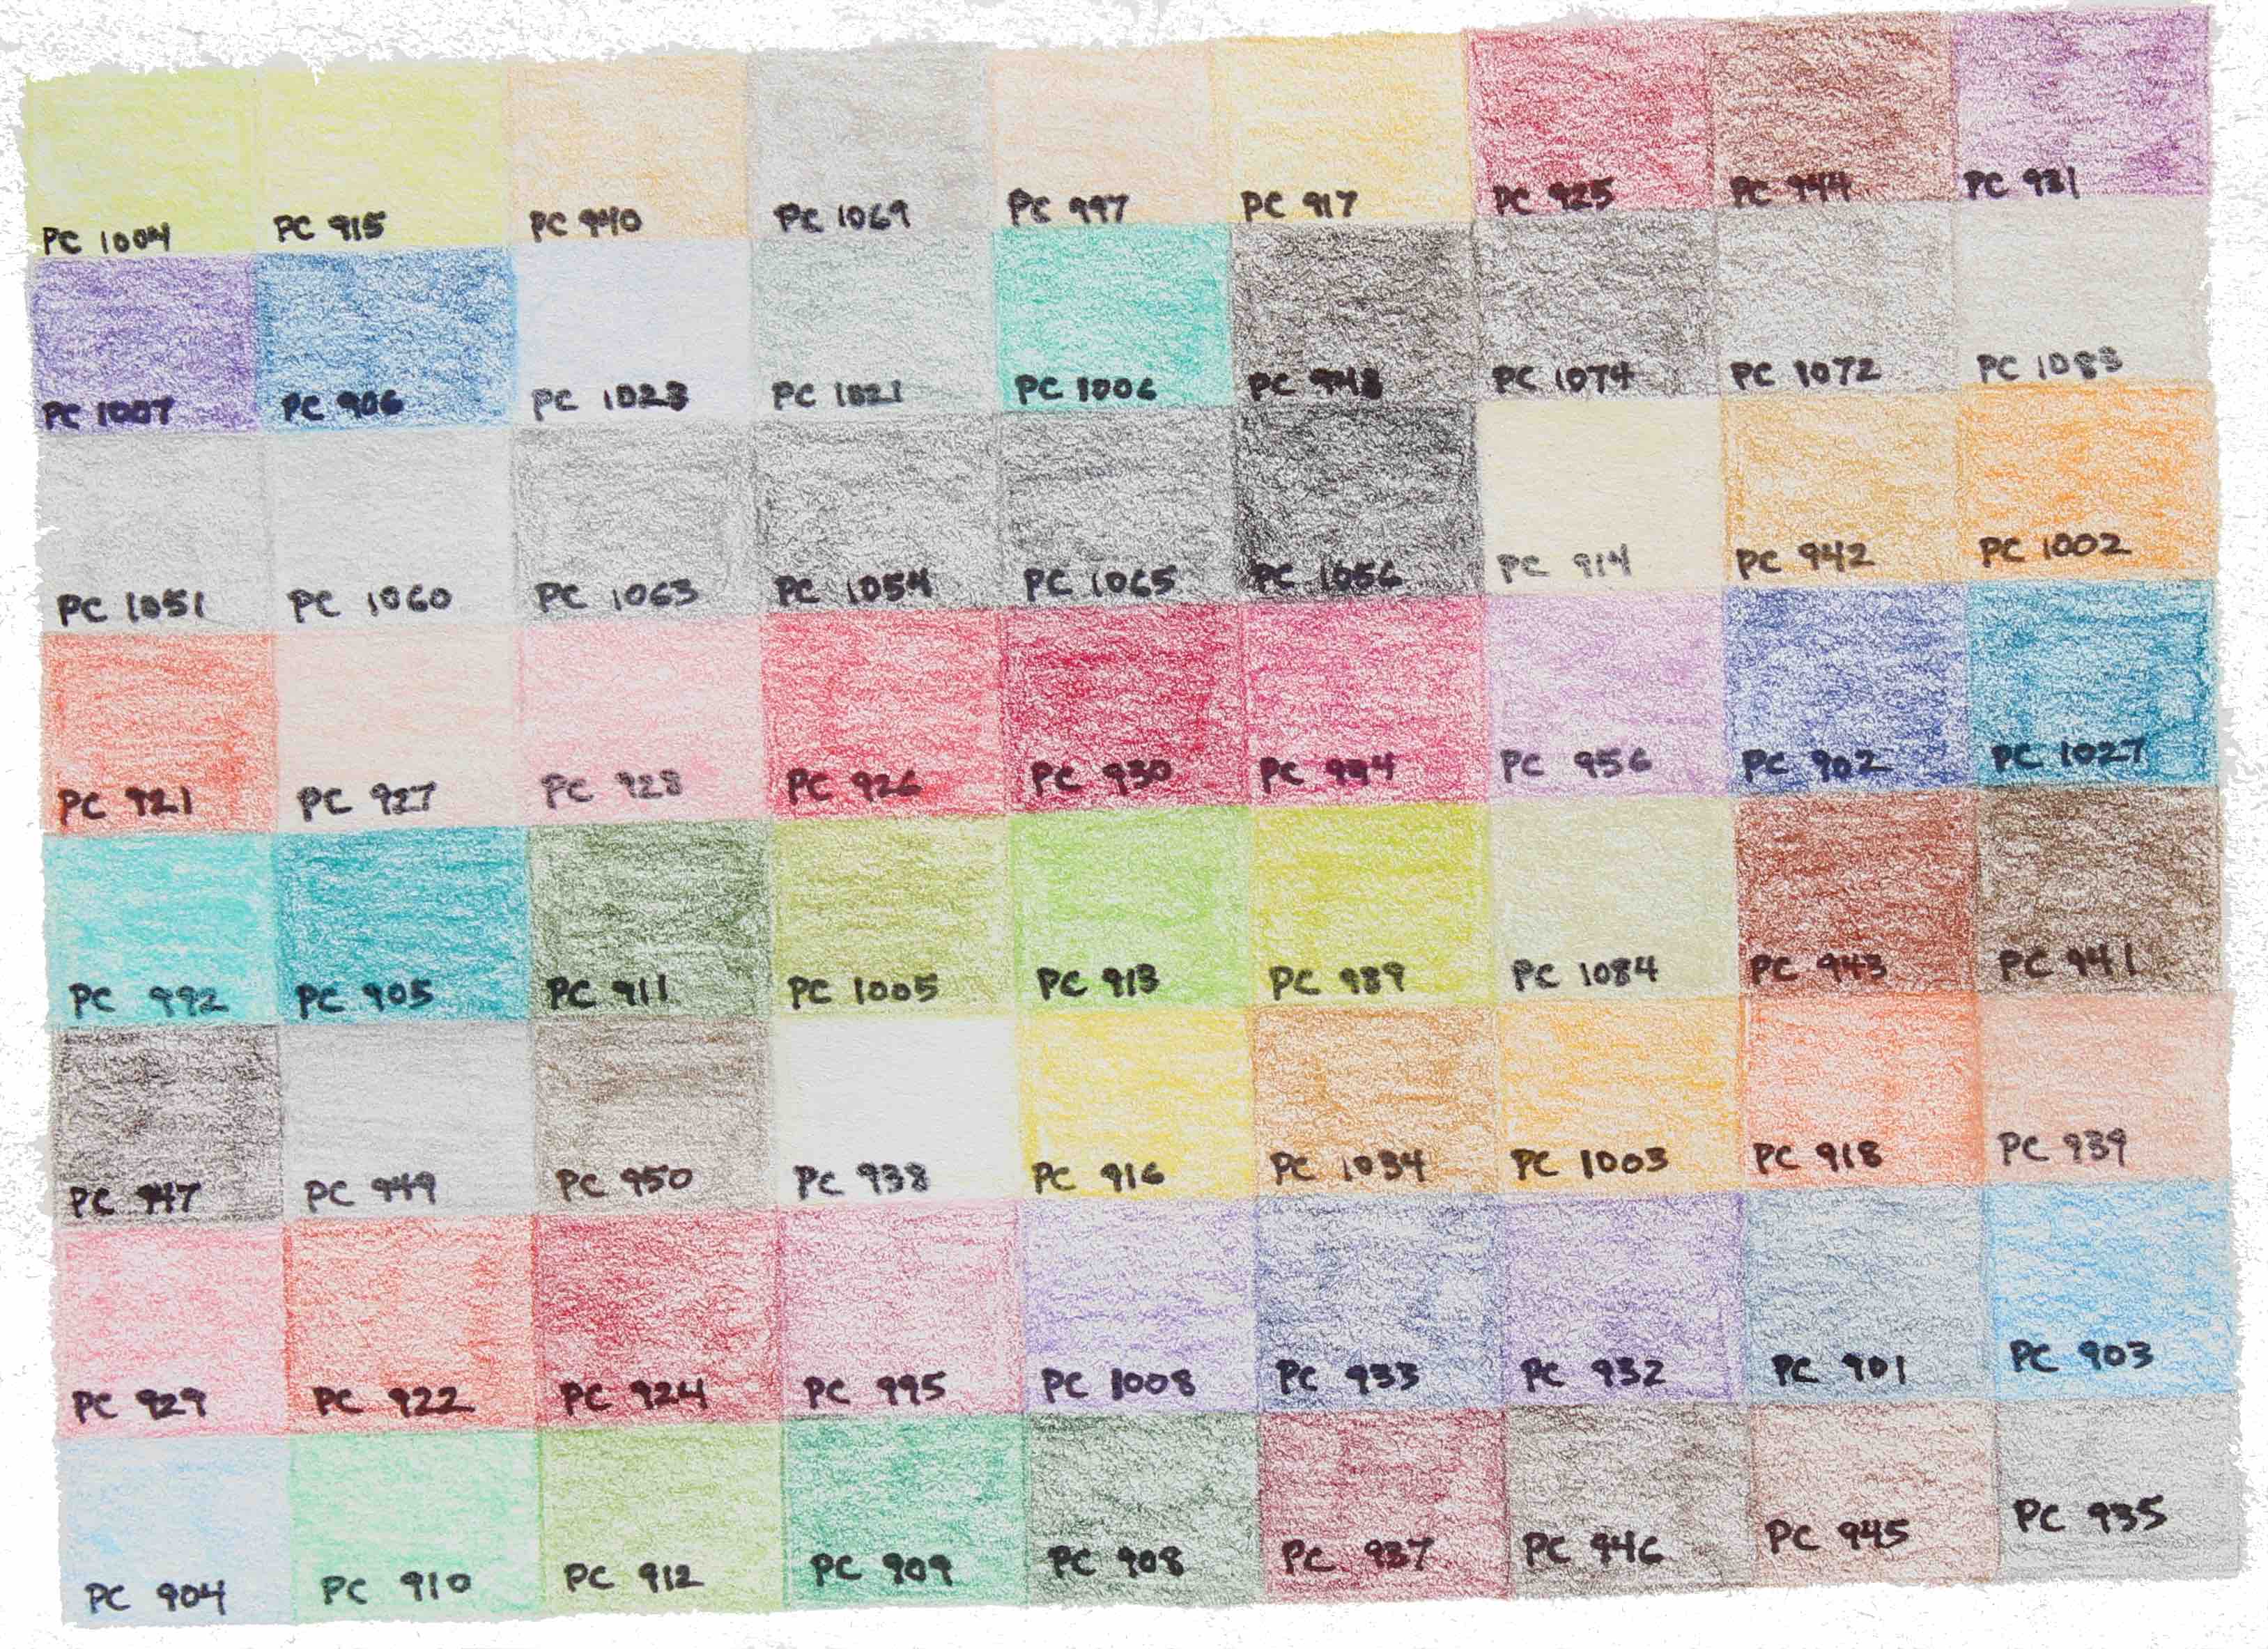 PC 1004 PC 915 PC 940 PC 1069 PC 997 PC 917 PC 925 PC 944 PC 931
PC 1007 PC 906 PC 1023 PC 1021 PC 1006 PC 948 PC 1074 PC 1072 PC 1083
PC 1051 PC 1060 PC 1063 PC 1054 PC 1065 PC 1056 PC 914 PC 942 PC 1002
PC 921 PC 927 PC 928 PC 926 PC 930 PC 994 PC 956 PC 902 PC 1027
PC 992 PC 905 PC 911 PC 1005 PC 913 PC 989 PC 1084 PC 943 PC 941
PC 947 PC 949 PC 950 PC 938 PC 916 PC 1034 PC 1003 PC 918 PC 939
PC 929 PC 922 PC 924 PC 995 PC 1008 PC 933 PC 932 PC 901 PC 903
PC 904 PC 910 PC 912 PC 909 PC 908 PC 937 PC 946 PC 945 PC 935